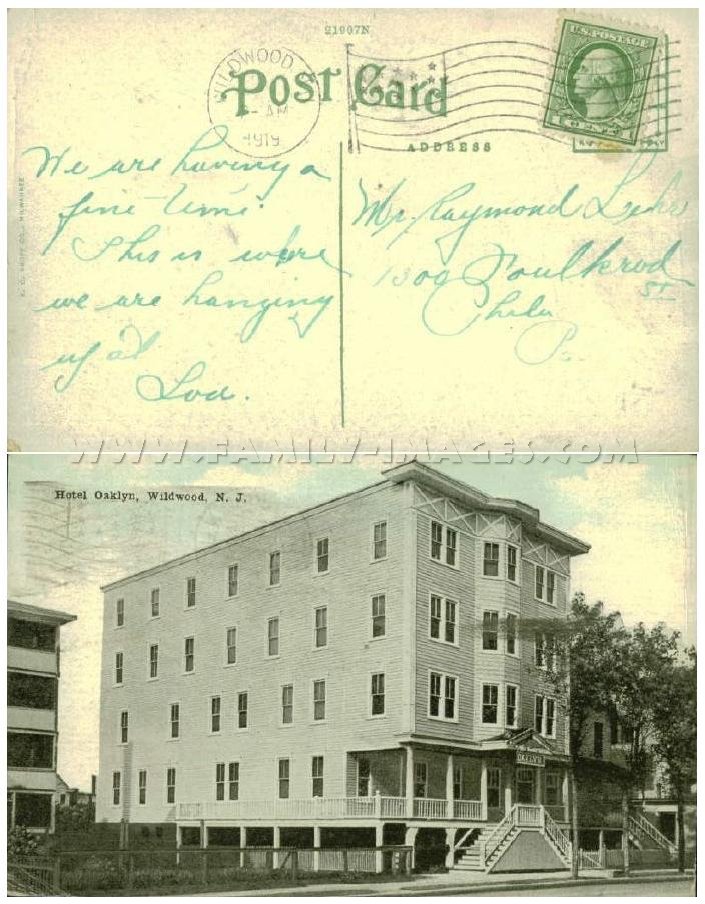 21907N
WILDWOOD
POST CARD
AM
1919
U.S. POSTAGE
1 CENT 1
ADDRESS
We are having a
fine time.
This is where
we are hanging
up at
Lou.
Mr. Raymond
1309 Foulkrod
St
Phila
Pa
E. C. KROPP CO. MILWAUKEE
WWW.FAMILY-IMAGES.COM
Hotel Oaklyn, Wildwood, N. J.
OAKLYN